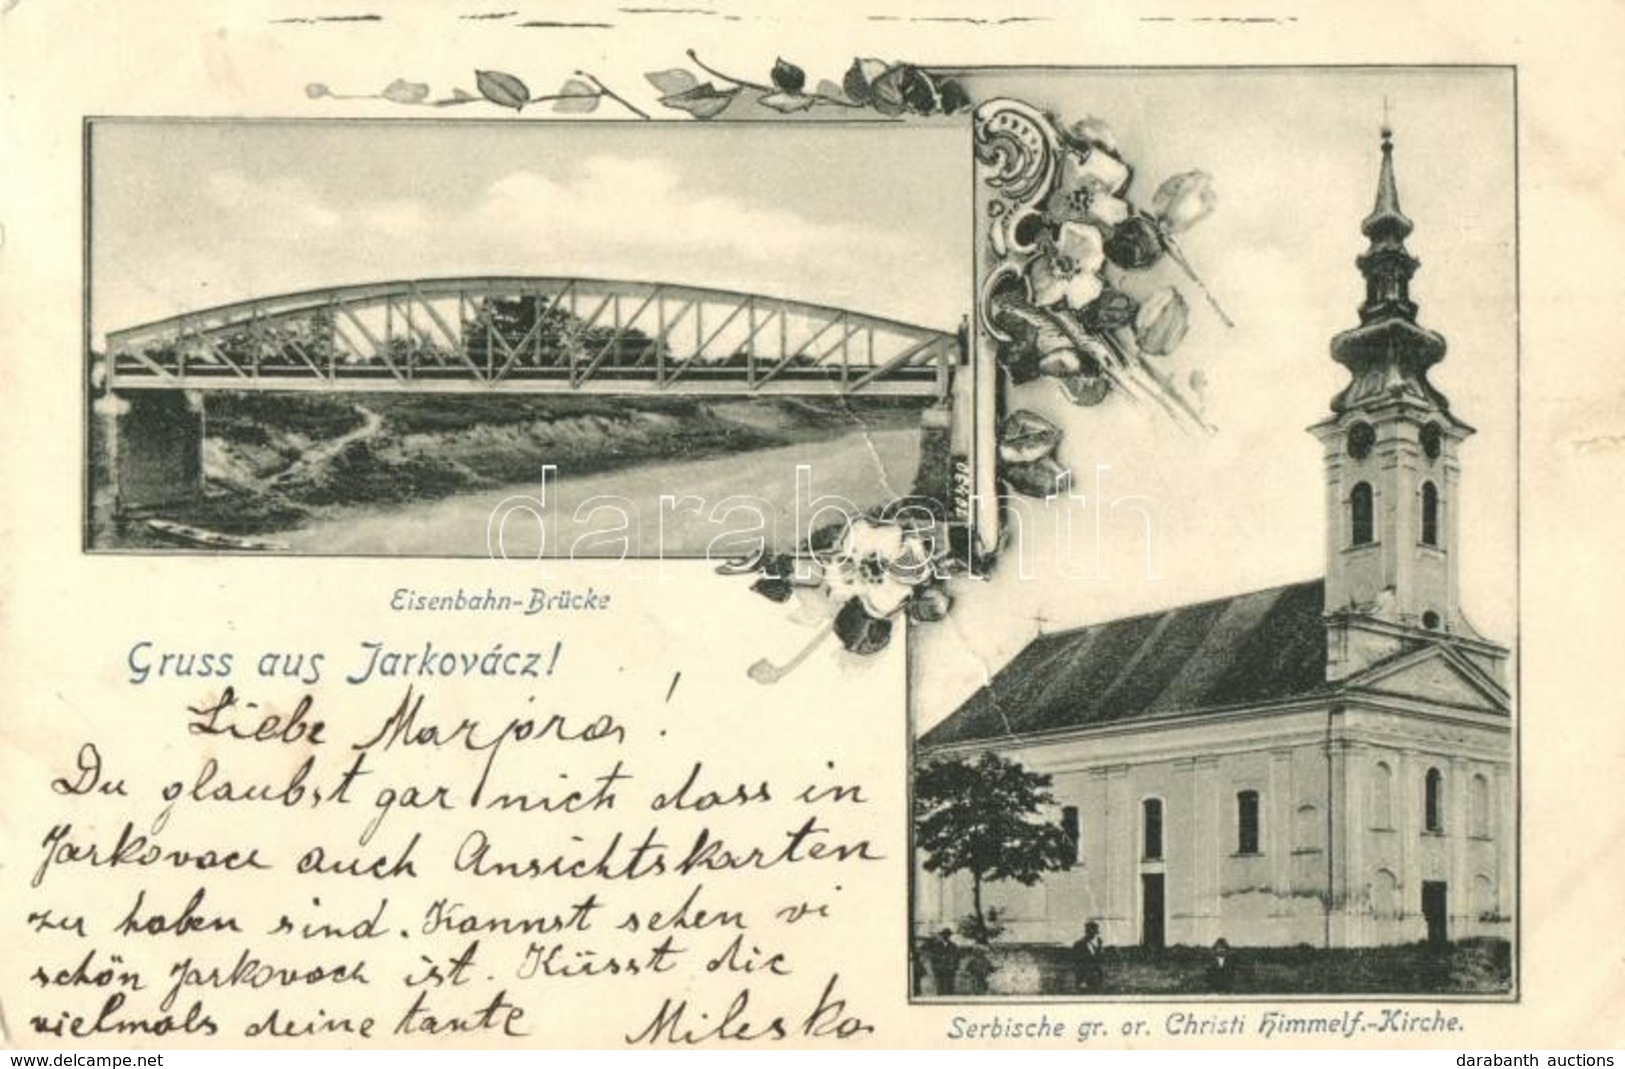 Eisenbahn-Brücke
Gruss aus Jarkovácz!
Liebe Marjora!
Du glaubst gar nich dass in
Jarkovacz auch Ansichtskarten
zu haben sind. Kannst sehen vi
schön Jarkovach ist. Küsst dic
vielmals deine tante Mileska
Serbische gr. or. Christi Himmelf.-Kirche.
darabanth
darabanth auctions